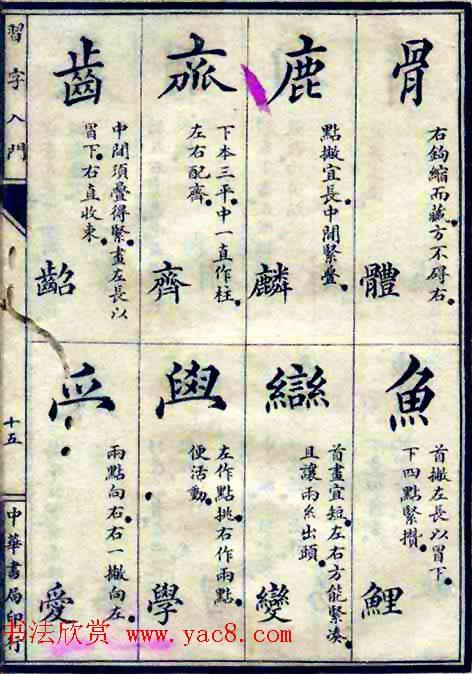 骨
右鉤縮而藏方不碍右
體
鹿
點撇宜長中間緊疊
麟
下本三平中一直作柱
左右配齊
齊
齒
中間須疊得緊畫左長以
冒下右直收束
齠
魚
首撇左長以冒下
下四點緊攢
鯉
首畫宜短左右方能緊凑
且讓兩糸出頭
變
左作點挑右作兩點
便活動
學
兩點向右右一撇向左
愛
習字入門
十五
中華書局印行
书法欣赏 www.yac8.com